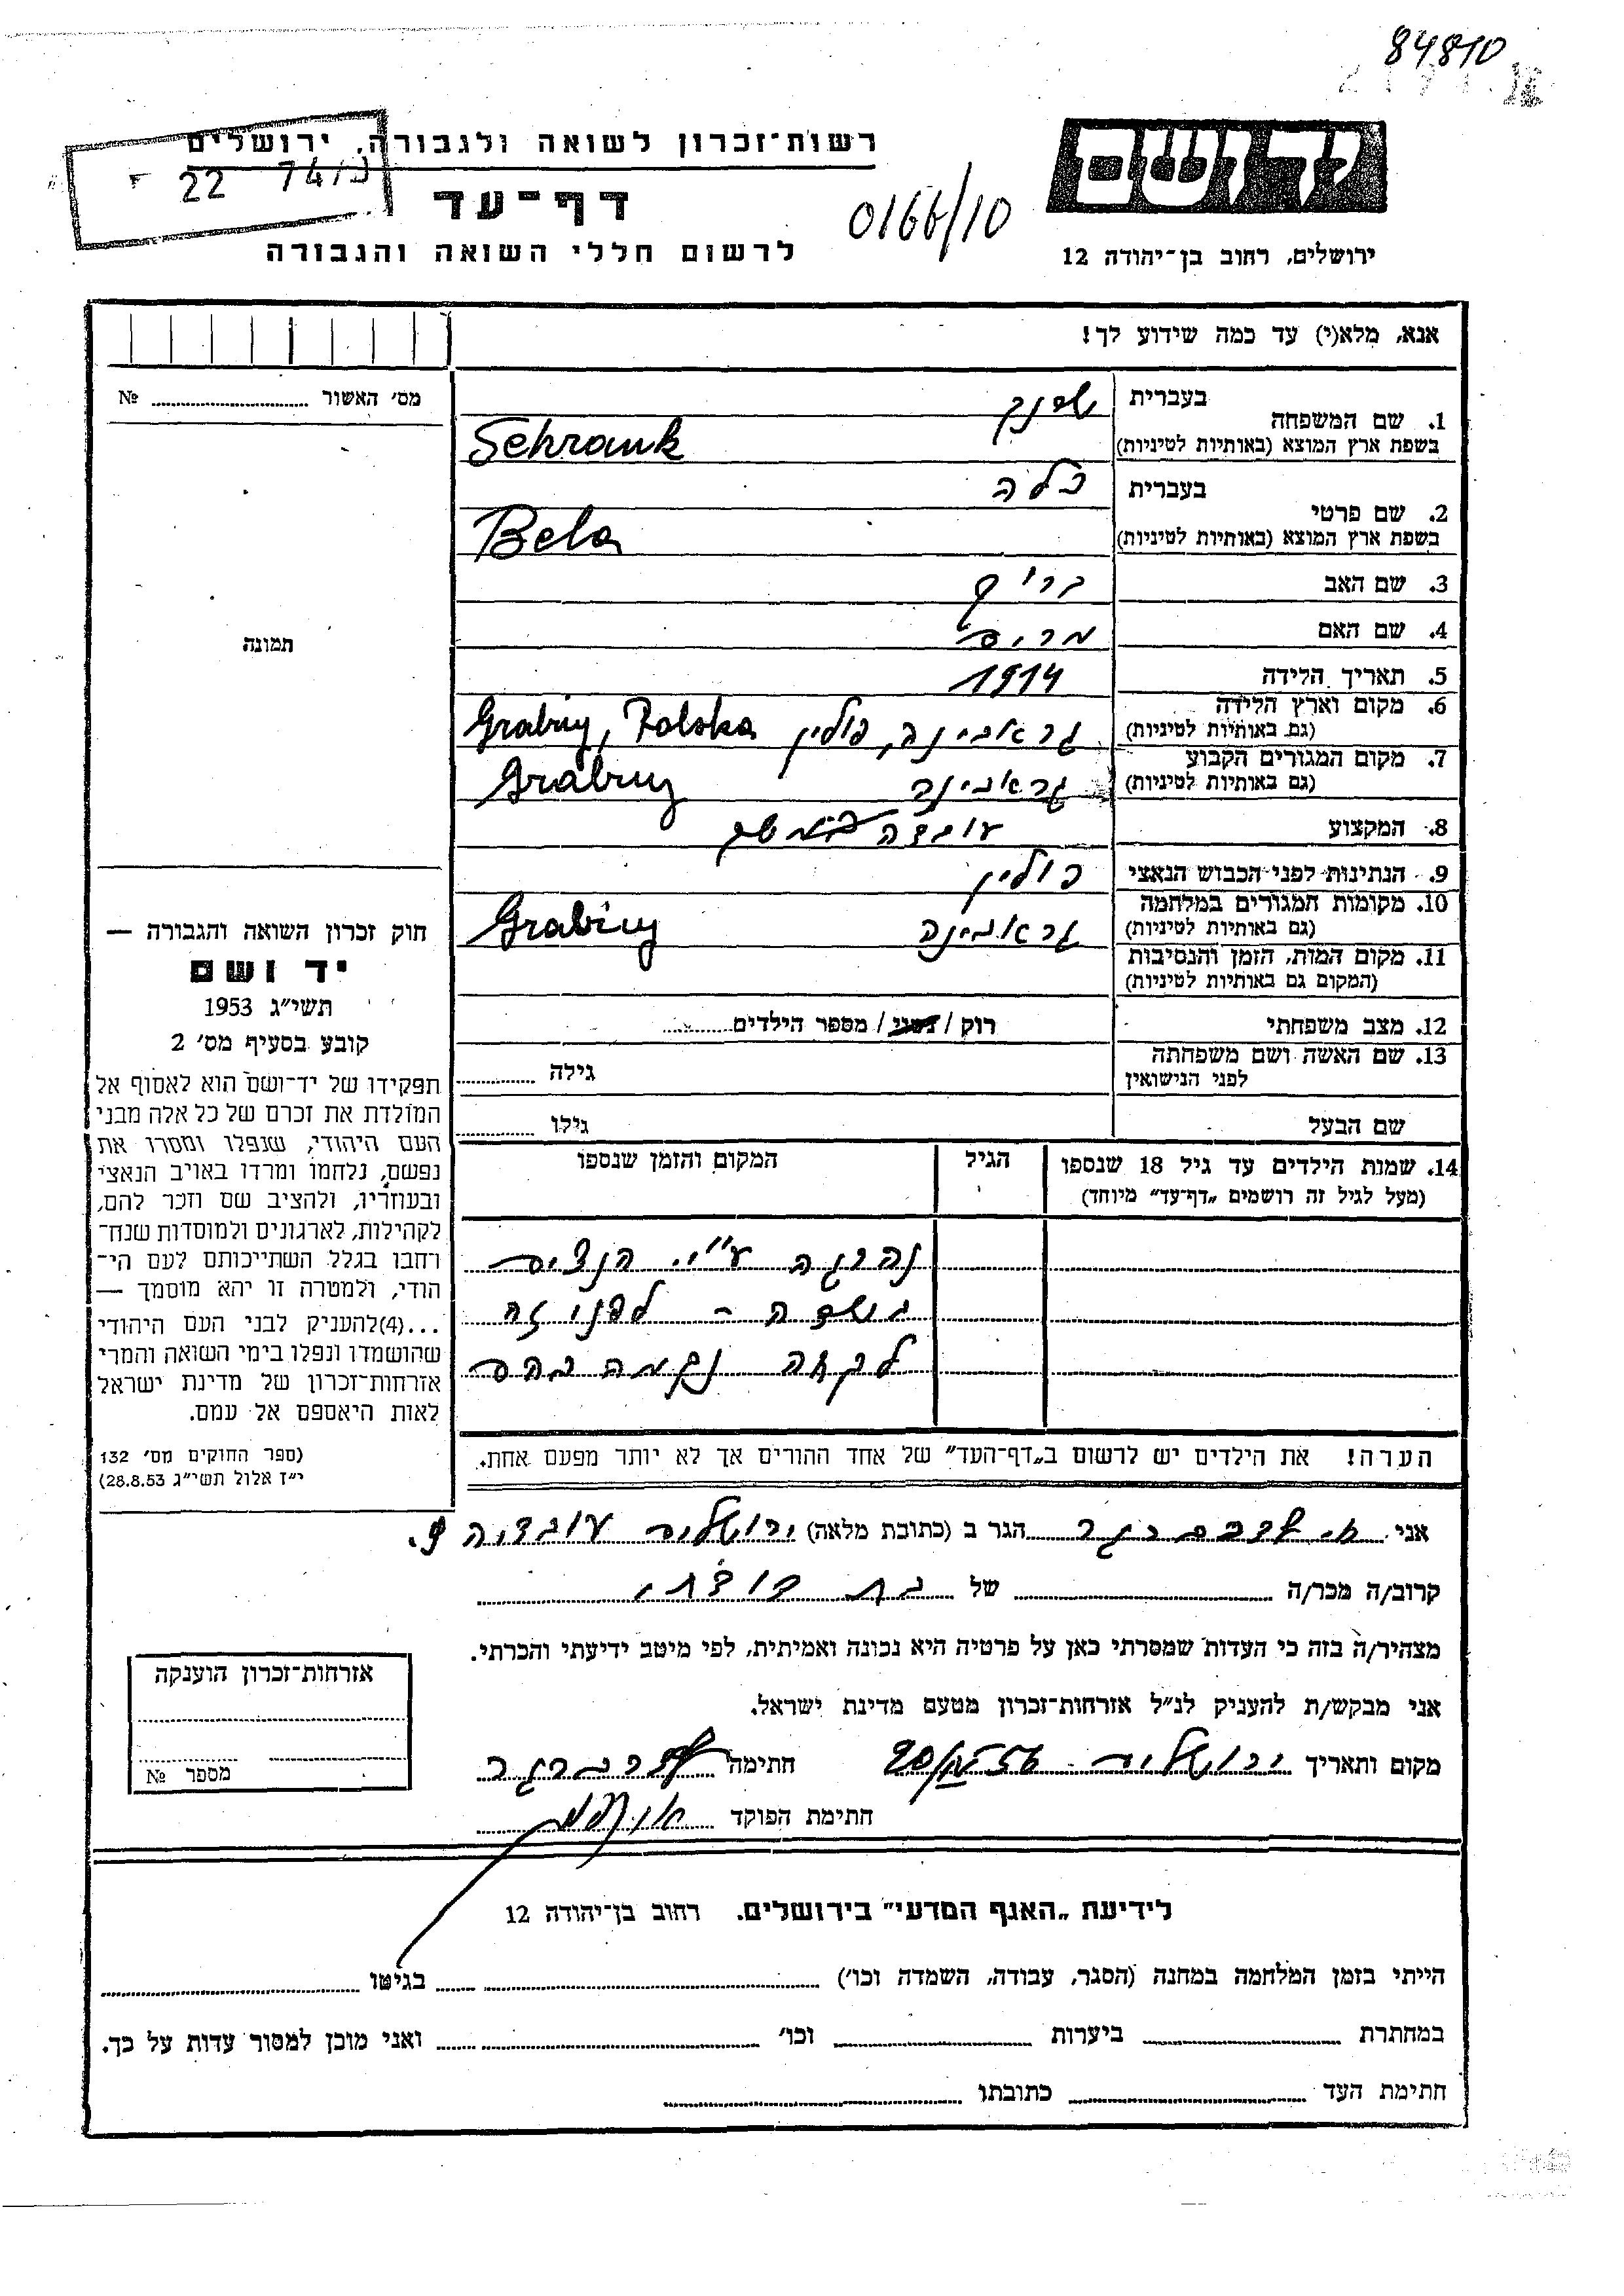 84810
רשות־זכרון לשואה ולגבורה, ירושלים
22 74
דף־עד
0166/10
לרשום חללי השואה והגבורה
ידושם
ירושלים, רחוב בן־יהודה 12
אנא, מלא(י) עד כמה שידוע לך!
מס׳ האשור № 
1. שם המשפחה
בעברית שרנק
בשפת ארץ המוצא (באותיות לטיניות) Schrank
2. שם פרטי
בעברית בלה
בשפת ארץ המוצא (באותיות לטיניות) Bela
3. שם האב
4. שם האם מרים
תמונה
5. תאריך הלידה 1914
6. מקום וארץ הלידה
(גם באותיות לטיניות) גראבינה, פולין Grabiny, Polska
7. מקום המגורים הקבוע
(גם באותיות לטיניות) גראבינה Grabiny
8. המקצוע עובדה במשק
9. הנתינות לפני הכבוש הנאצי פולין
10. מקומות המגורים במלחמה
(גם באותיות לטיניות) גראבינה Grabiny
11. מקום המות, הזמן והנסיבות
(המקום גם באותיות לטיניות)
12. מצב משפחתי רוק / נשוי / מספר הילדים
13. שם האשה ושם משפחתה
לפני הנישואין גילה
שם הבעל גילו
14. שמות הילדים עד גיל 18 שנספו הגיל המקום והזמן שנספו
(מעל לגיל זה רושמים „דף־עד” מיוחד)
נהרגה ע״י הנצים
לפני זה
לקחה נקמה בהם
הערה! את הילדים יש לרשום ב„דף־העד” של אחד ההורים אך לא יותר מפעם אחת.
חוק זכרון השואה והגבורה —
יד ושם
תשי״ג 1953
קובע בסעיף מס׳ 2
תפקידו של יד־ושם הוא לאסוף אל
המולדת את זכרם של כל אלה מבני
העם היהודי, שנפלו ומסרו את
נפשם, נלחמו ומרדו באויב הנאצי
ובעוזריו, ולהציב שם וזכר להם,
לקהילות, לארגונים ולמוסדות שנח־
רחבו בגלל השתייכותם לעם הי־
הודי, ולמטרה זו יהא מוסמך —
...(4)להעניק לבני העם היהודי
שהושמדו ונפלו בימי השואה והמרי
אזרחות־זכרון של מדינת ישראל
לאות היאספם אל עמם.
(ספר החוקים מס׳ 132
י״ז אלול תשי״ג 28.8.53)
אני הגר ב (כתובת מלאה) ירושלים עובדיה 9.
קרוב/ה מכר/ה של בת דודתי
מצהיר/ה בזה כי העדות שמסרתי כאן על פרטיה היא נכונה ואמיתית, לפי מיטב ידיעתי והכרתי.
אני מבקש/ת להעניק לנ״ל אזרחות־זכרון מטעם מדינת ישראל.
מקום ותאריך ירושלים חתימה
חתימת הפוקד
אזרחות־זכרון הוענקה
מספר №
לידיעת „האגף המדעי” בירושלים. רחוב בן־יהודה 12
הייתי בזמן המלחמה במחנה (הסגר, עבודה, השמדה וכו׳) בגיטו
במחתרת ביערות וכו׳ ואני מוכן למסור עדות על כך.
חתימת העד כתובתו